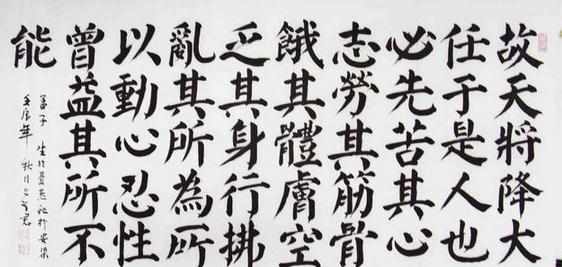 故天將降大
任于是人也
必先苦其心
志勞其筋骨
餓其體膚空
乏其身行拂
亂其所為所
以動心忍性
曾益其所不
能
孟子 生於憂患死於安樂
年 秋月